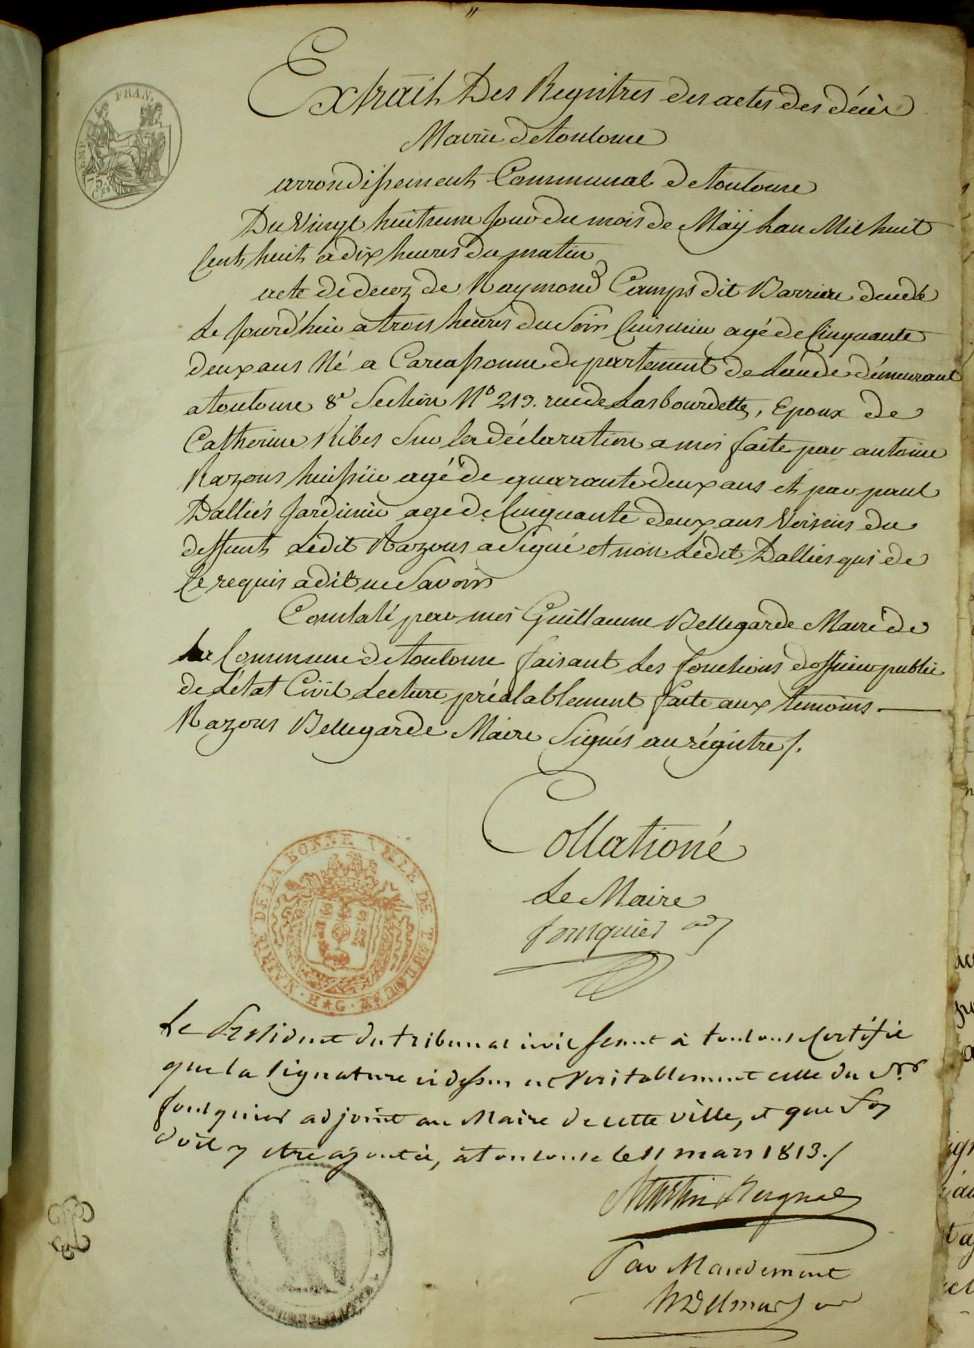 FRAN.
Extrait Des Registres des actes des décès
Mairie de toulouse
arrondissement Communal de toulouse
Du Vingt huitieme Jour du mois de Maÿ L'an Mil huit
Cent huit a dix heures du matin
acte de decez de Raymond Camps dit Barriere decedé
Le Jourd'hui a trois heures du Soir Cuisinier agé de Cinquante
deux ans Né a Carcassonne departement de L'aude demeurant
a toulouse 8e Section No 219. rue de Lasbourdettes, Epoux de
Catherine Ribes Sur la déclaration a moi faite par antoine
Razous huissier agé de quarante deux ans et par paul
Dalliés Jardinier agé de Cinquante deux ans Voisins du
deffunt Ledit Razous a Signé et non Ledit Dallies qui de
Ce requis a dit ne Savoir
Constaté par moi Guillaume Bellegarde Maire de
La Commune de toulouse faisant Les fonctions d'officier public
de L'état Civil Lecture préalablement faite aux temoins.
Razous Bellegarde Maire Signés au régistre /.
Collationé
Le Maire
fouquier adj
MAIRIE DE LA BONNE VILLE DE TOULOUSE H★G
Le President du tribunal civil seant à toulouse Certifie
que la signature ci dessus est Veritablement celle du Sr
fouquier adjoint au Maire de cette ville, et que foy
doit y etre ajoutée, à toulouse le 11 mars 1813./
Par Mandement